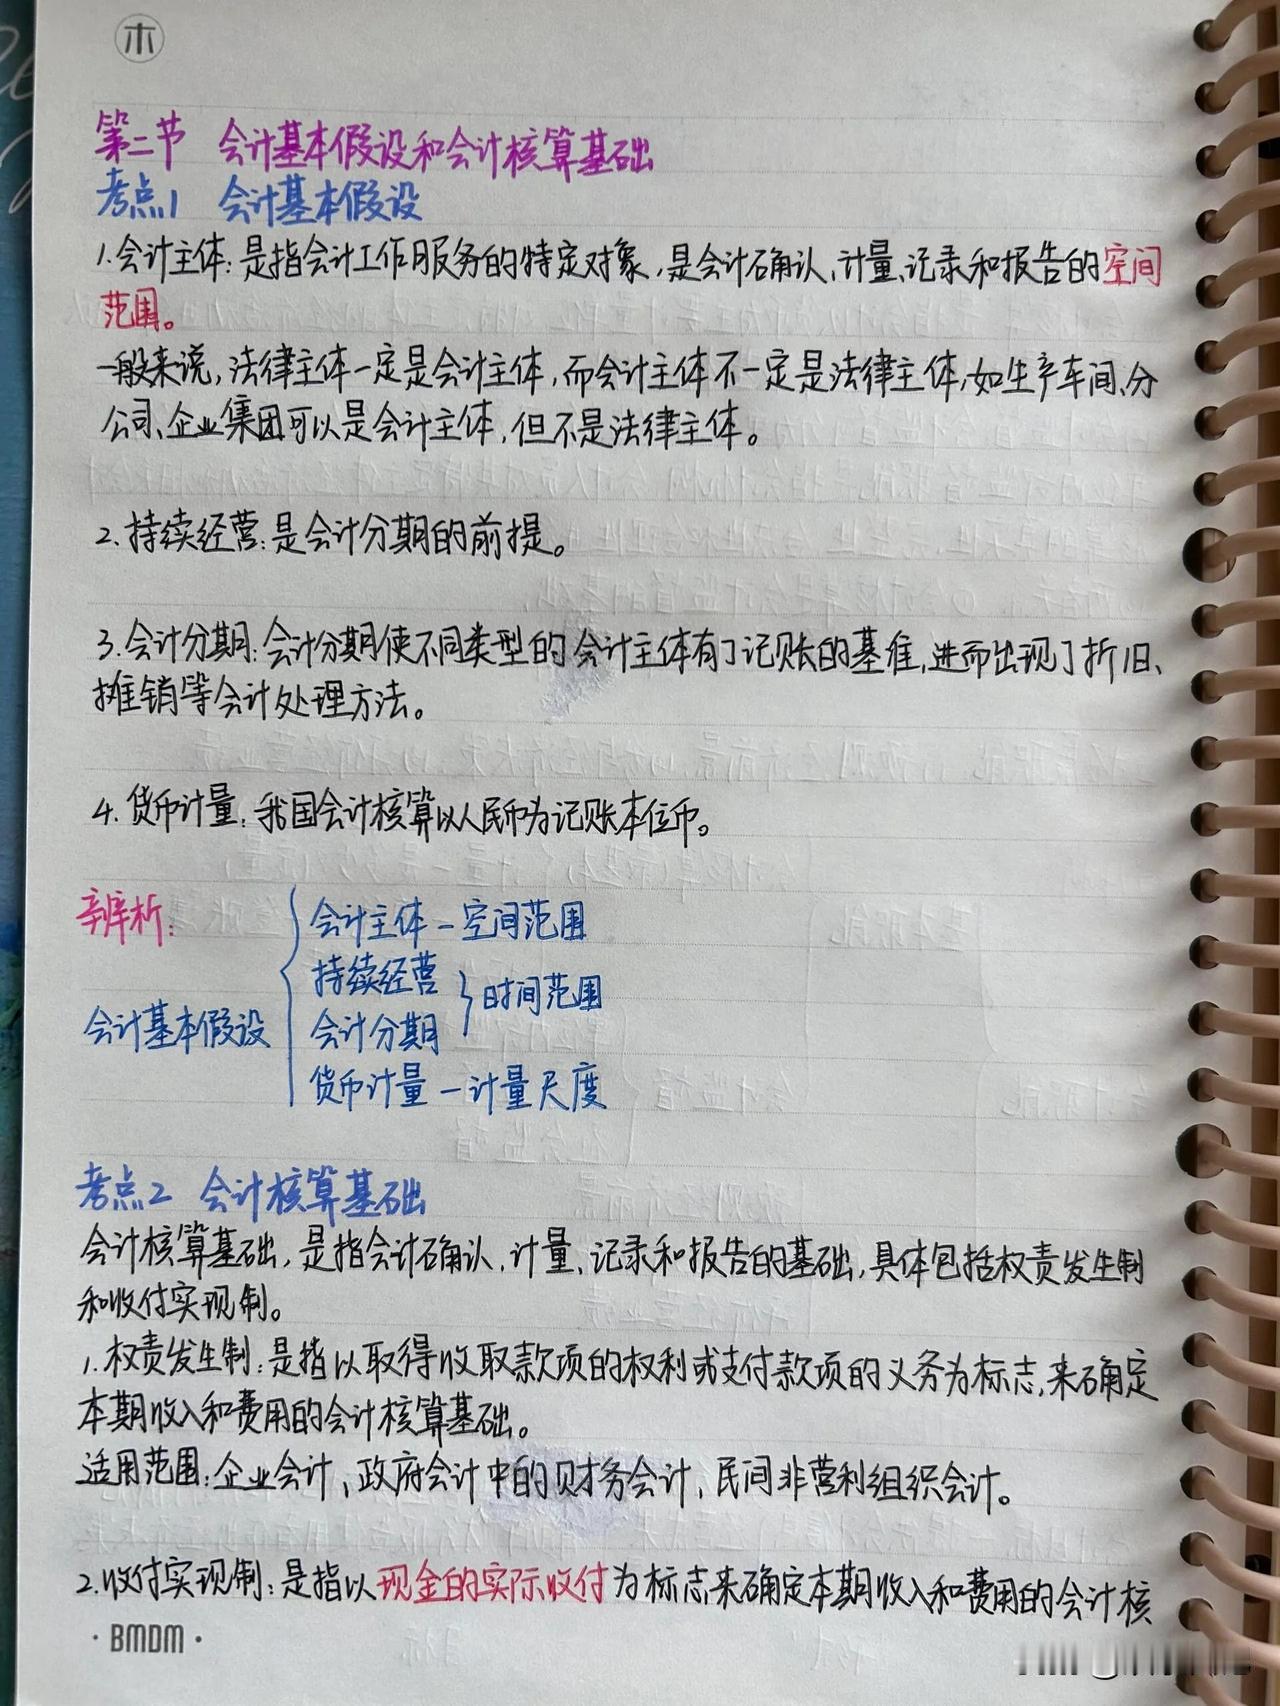 木
第二节 会计基本假设和会计核算基础
考点1 会计基本假设
1.会计主体:是指会计工作服务的特定对象,是会计确认、计量、记录和报告的空间
范围。
一般来说,法律主体一定是会计主体,而会计主体不一定是法律主体,如生产车间、分
公司、企业集团可以是会计主体,但不是法律主体。
2.持续经营:是会计分期的前提。
3.会计分期:会计分期使不同类型的会计主体有了记账的基准,进而出现了折旧、
摊销等会计处理方法。
4.货币计量:我国会计核算以人民币为记账本位币。
辨析:
会计基本假设
会计主体-空间范围
持续经营
会计分期
时间范围
货币计量-计量尺度
考点2 会计核算基础
会计核算基础,是指会计确认、计量、记录和报告的基础,具体包括权责发生制
和收付实现制。
1.权责发生制:是指以取得收取款项的权利或支付款项的义务为标志,来确定
本期收入和费用的会计核算基础。
适用范围:企业会计、政府会计中的财务会计、民间非营利组织会计。
2.收付实现制:是指以现金的实际收付为标志,来确定本期收入和费用的会计核
·BMDM·